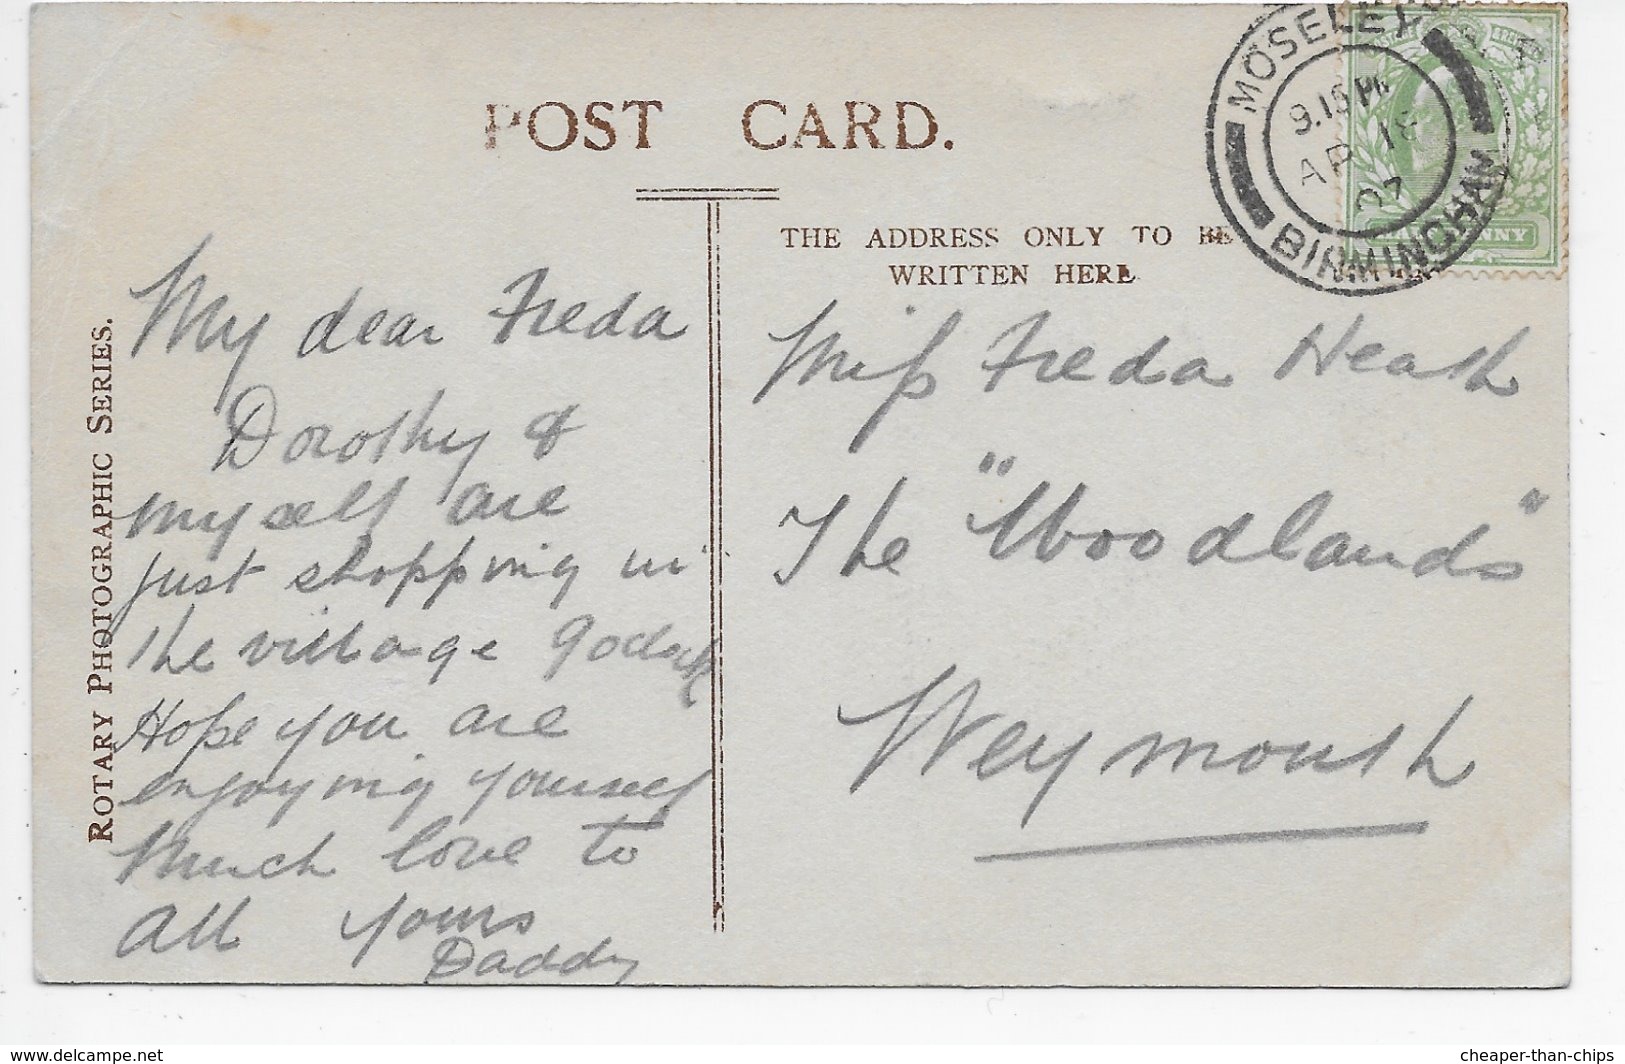 POST CARD.
MOSELEY
9.15 PM
AP 18
07
BIRMINGHAM
THE ADDRESS ONLY TO BE
WRITTEN HERE
ROTARY PHOTOGRAPHIC SERIES.
My dear Freda
Dorothy &
myself are
just shopping in
the village
Hope you are
enjoying yourself
Much love to
All yours
Daddy
Miss Freda Heath
The "Woodlands"
Weymouth
www.delcampe.net
cheaper-than-chips